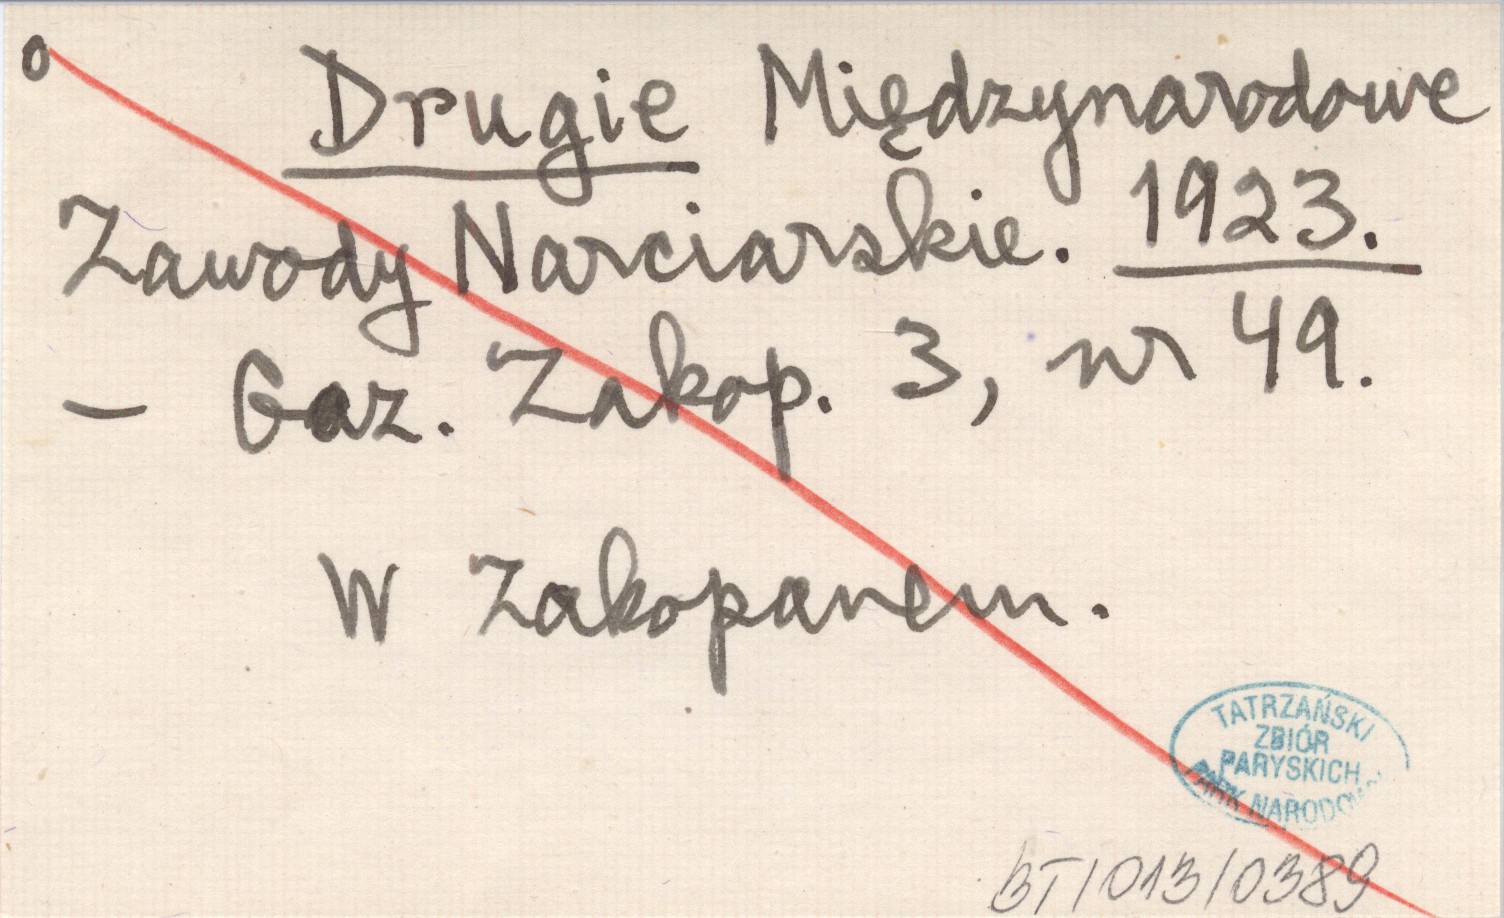 o Drugie Międzynarodowe
Zawody Narciarskie. 1923.
– Gaz. Zakop. 3, nr 49.
W Zakopanem.
TATRZAŃSKI
ZBIÓR
PARYSKICH
PARK NARODOWY
BT/013/0389